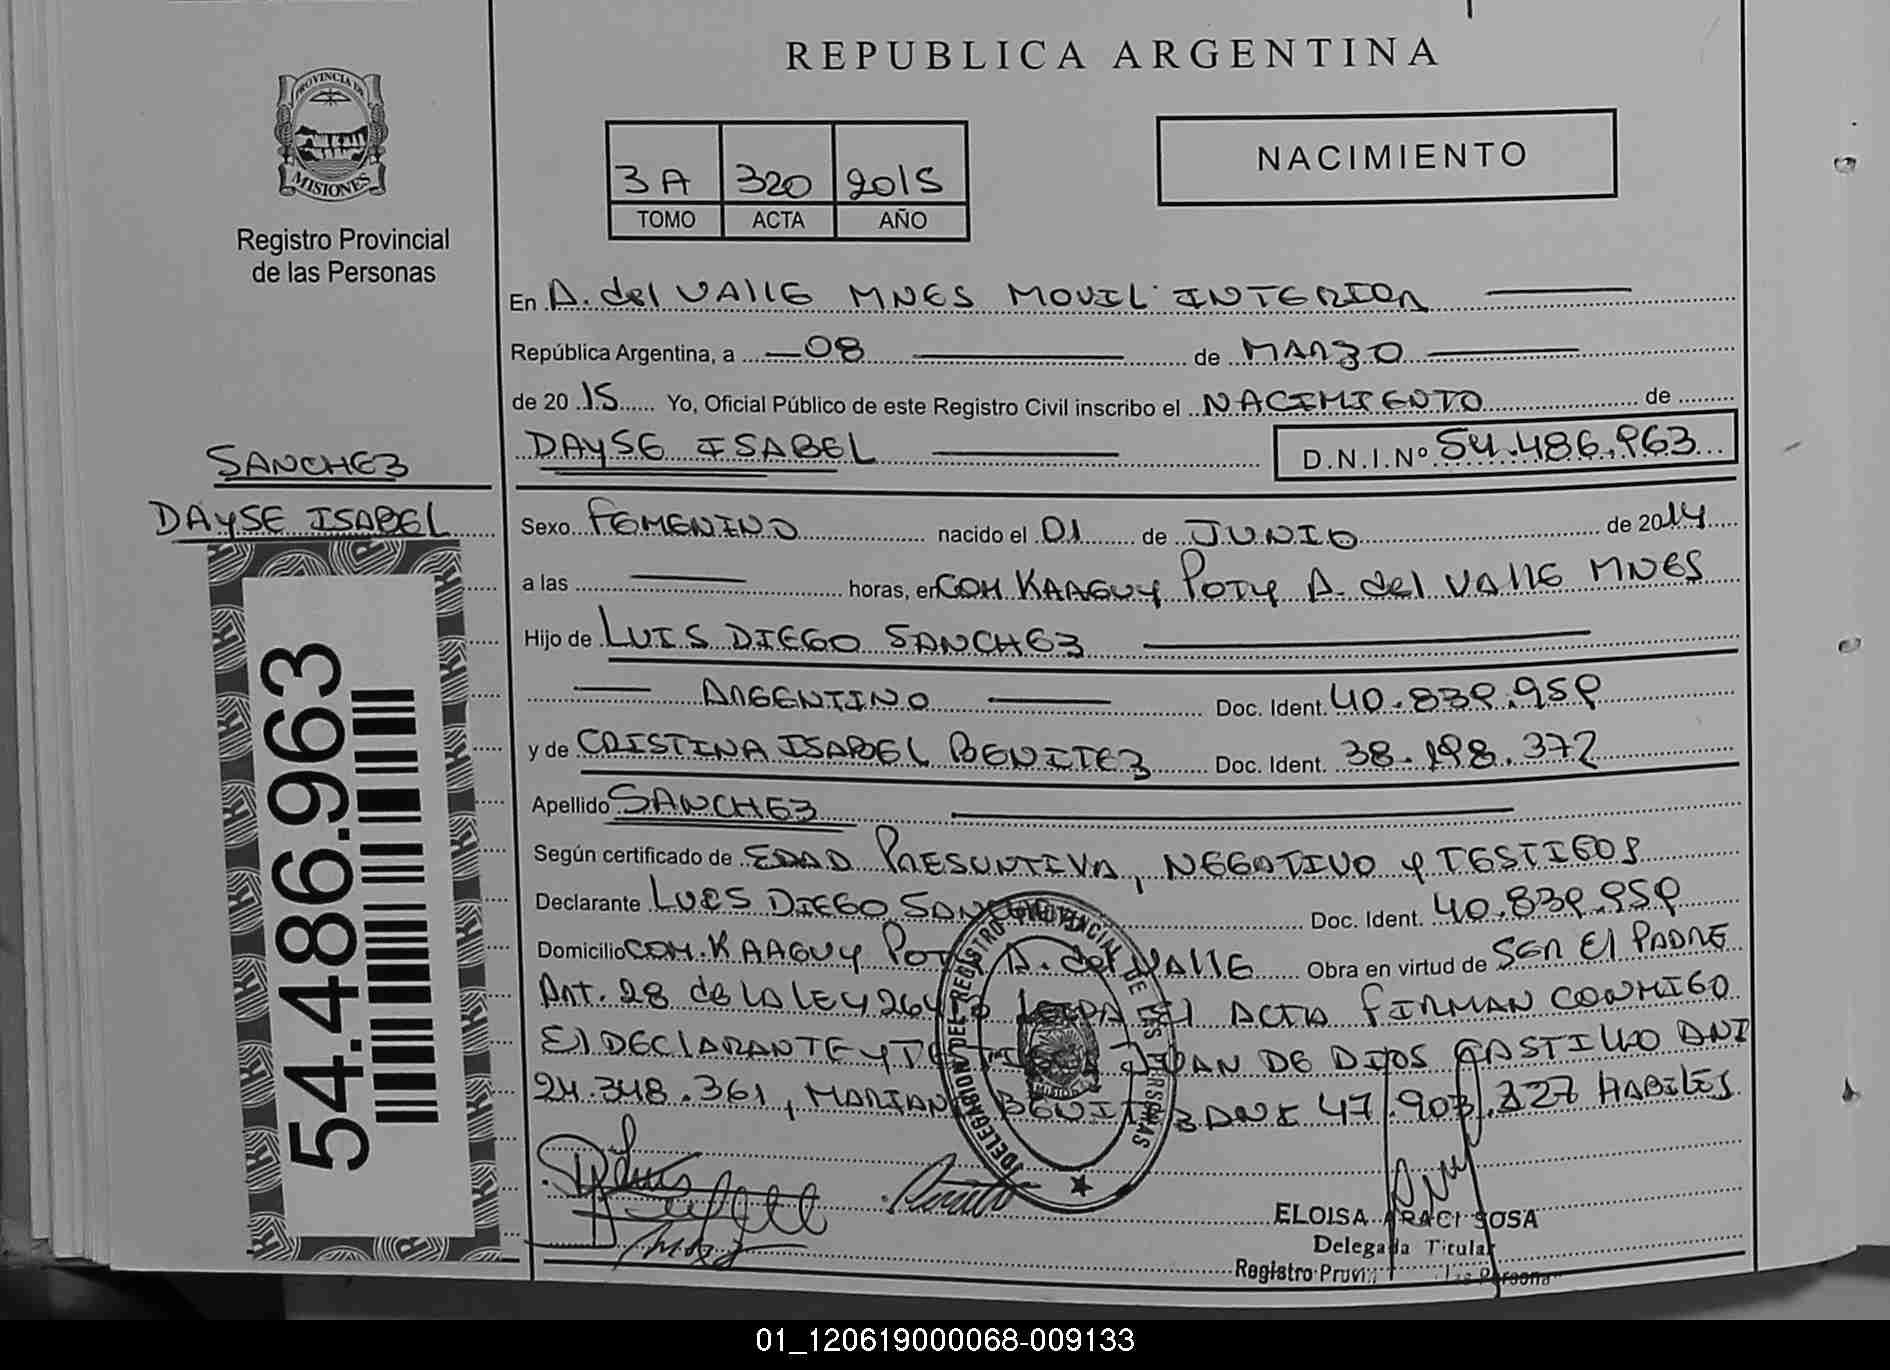 REPUBLICA ARGENTINA
PROVINCIA DE
MISIONES
Registro Provincial
de las Personas
3A 320 2015
TOMO ACTA AÑO
NACIMIENTO
En A. del VALLE MNES MOVIL INTERIOR
República Argentina, a 08 de MARZO
de 20 15 Yo, Oficial Público de este Registro Civil inscribo el NACIMIENTO de
DAYSE ISABEL D.N.I.Nº 54.486.963
SANCHEZ
DAYSE ISABEL
Sexo FEMENINO nacido el 01 de JUNIO de 2014
a las horas, en COM KAAGUY POTY A. del VALLE MNES
Hijo de LUIS DIEGO SANCHEZ
ARGENTINO Doc. Ident. 40.839.959
y de CRISTINA ISABEL BENITEZ Doc. Ident. 38.198.372
Apellido SANCHEZ
Según certificado de EDAD PRESUNTIVA, NEGATIVO y TESTIGOS
Declarante LUIS DIEGO SANCHEZ Doc. Ident. 40.839.959
Domicilio COM. KAAGUY POTY A. del VALLE Obra en virtud de SER El PADRE
ART. 28 de LA LEY 26413 LEIDA El ACTA FIRMAN CONMIGO
El DECLARANTE y TESTIGOS JUAN DE DIOS CASTILLO DNI
24.348.361, MARIANA BENITEZ DNI 47.903.227 HABILES
54.486.963
DELEGACION DEL REGISTRO PROVINCIAL DE LAS PERSONAS
ELOISA ARACI SOSA
Delegada Titular
Registro Provin las Persona
01_120619000068-009133